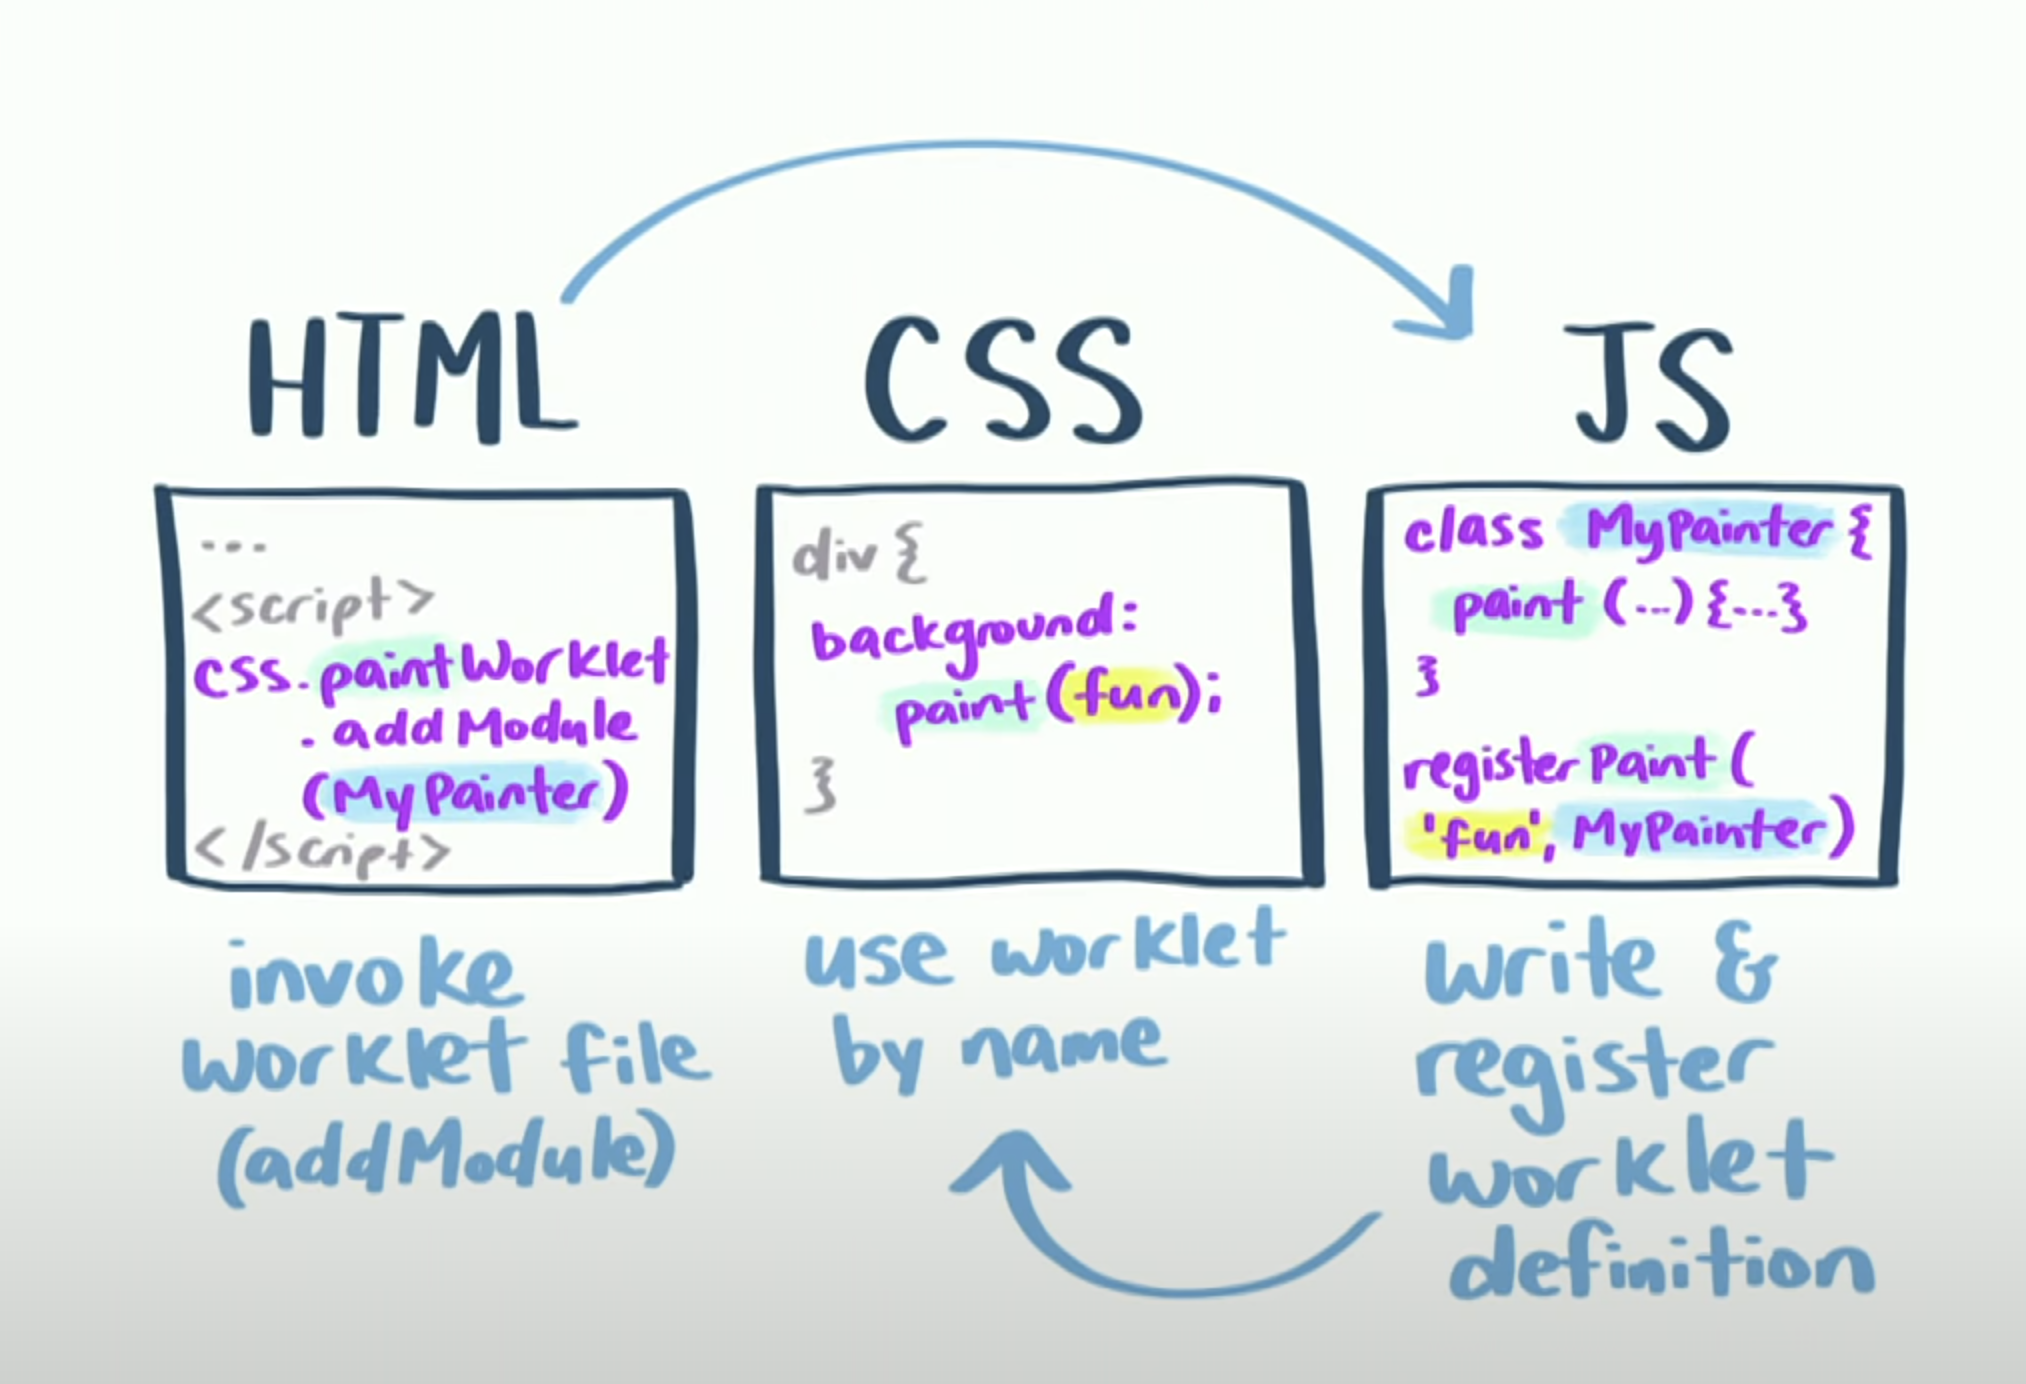 HTML
...
<script>
css.paintWorklet
.addModule
(MyPainter)
</script>
invoke
worklet file
(addModule)
CSS
div {
background:
paint(fun);
}
use worklet
by name
JS
class MyPainter {
paint (...) {...}
}
registerPaint(
'fun', MyPainter)
write &
register
worklet
definition